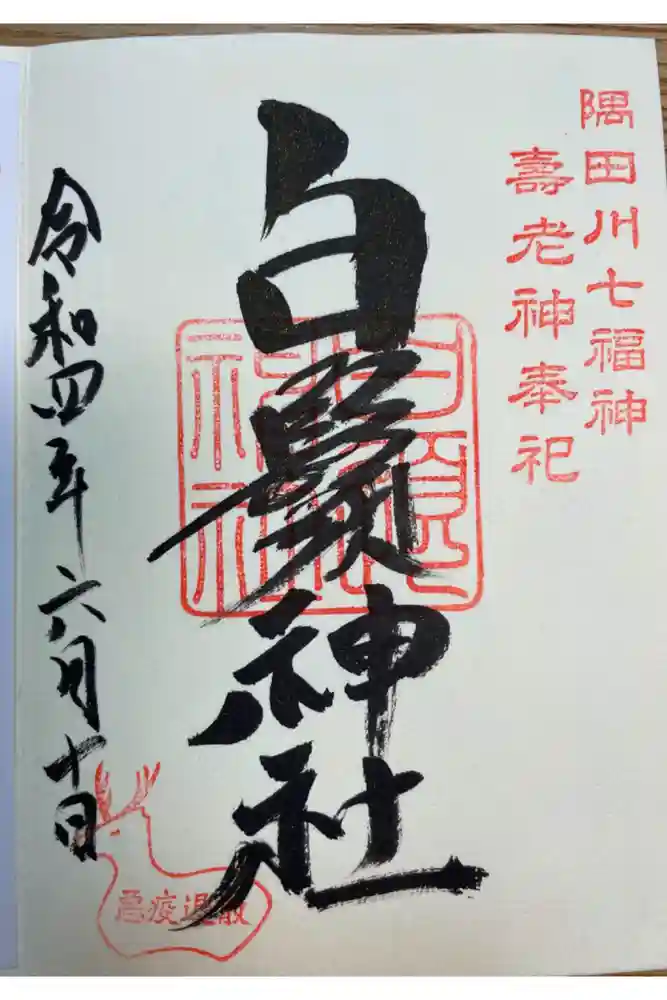 隅田川七福神
壽老神奉祀
白鬚神社
令和四年六月十日
悪疫退散